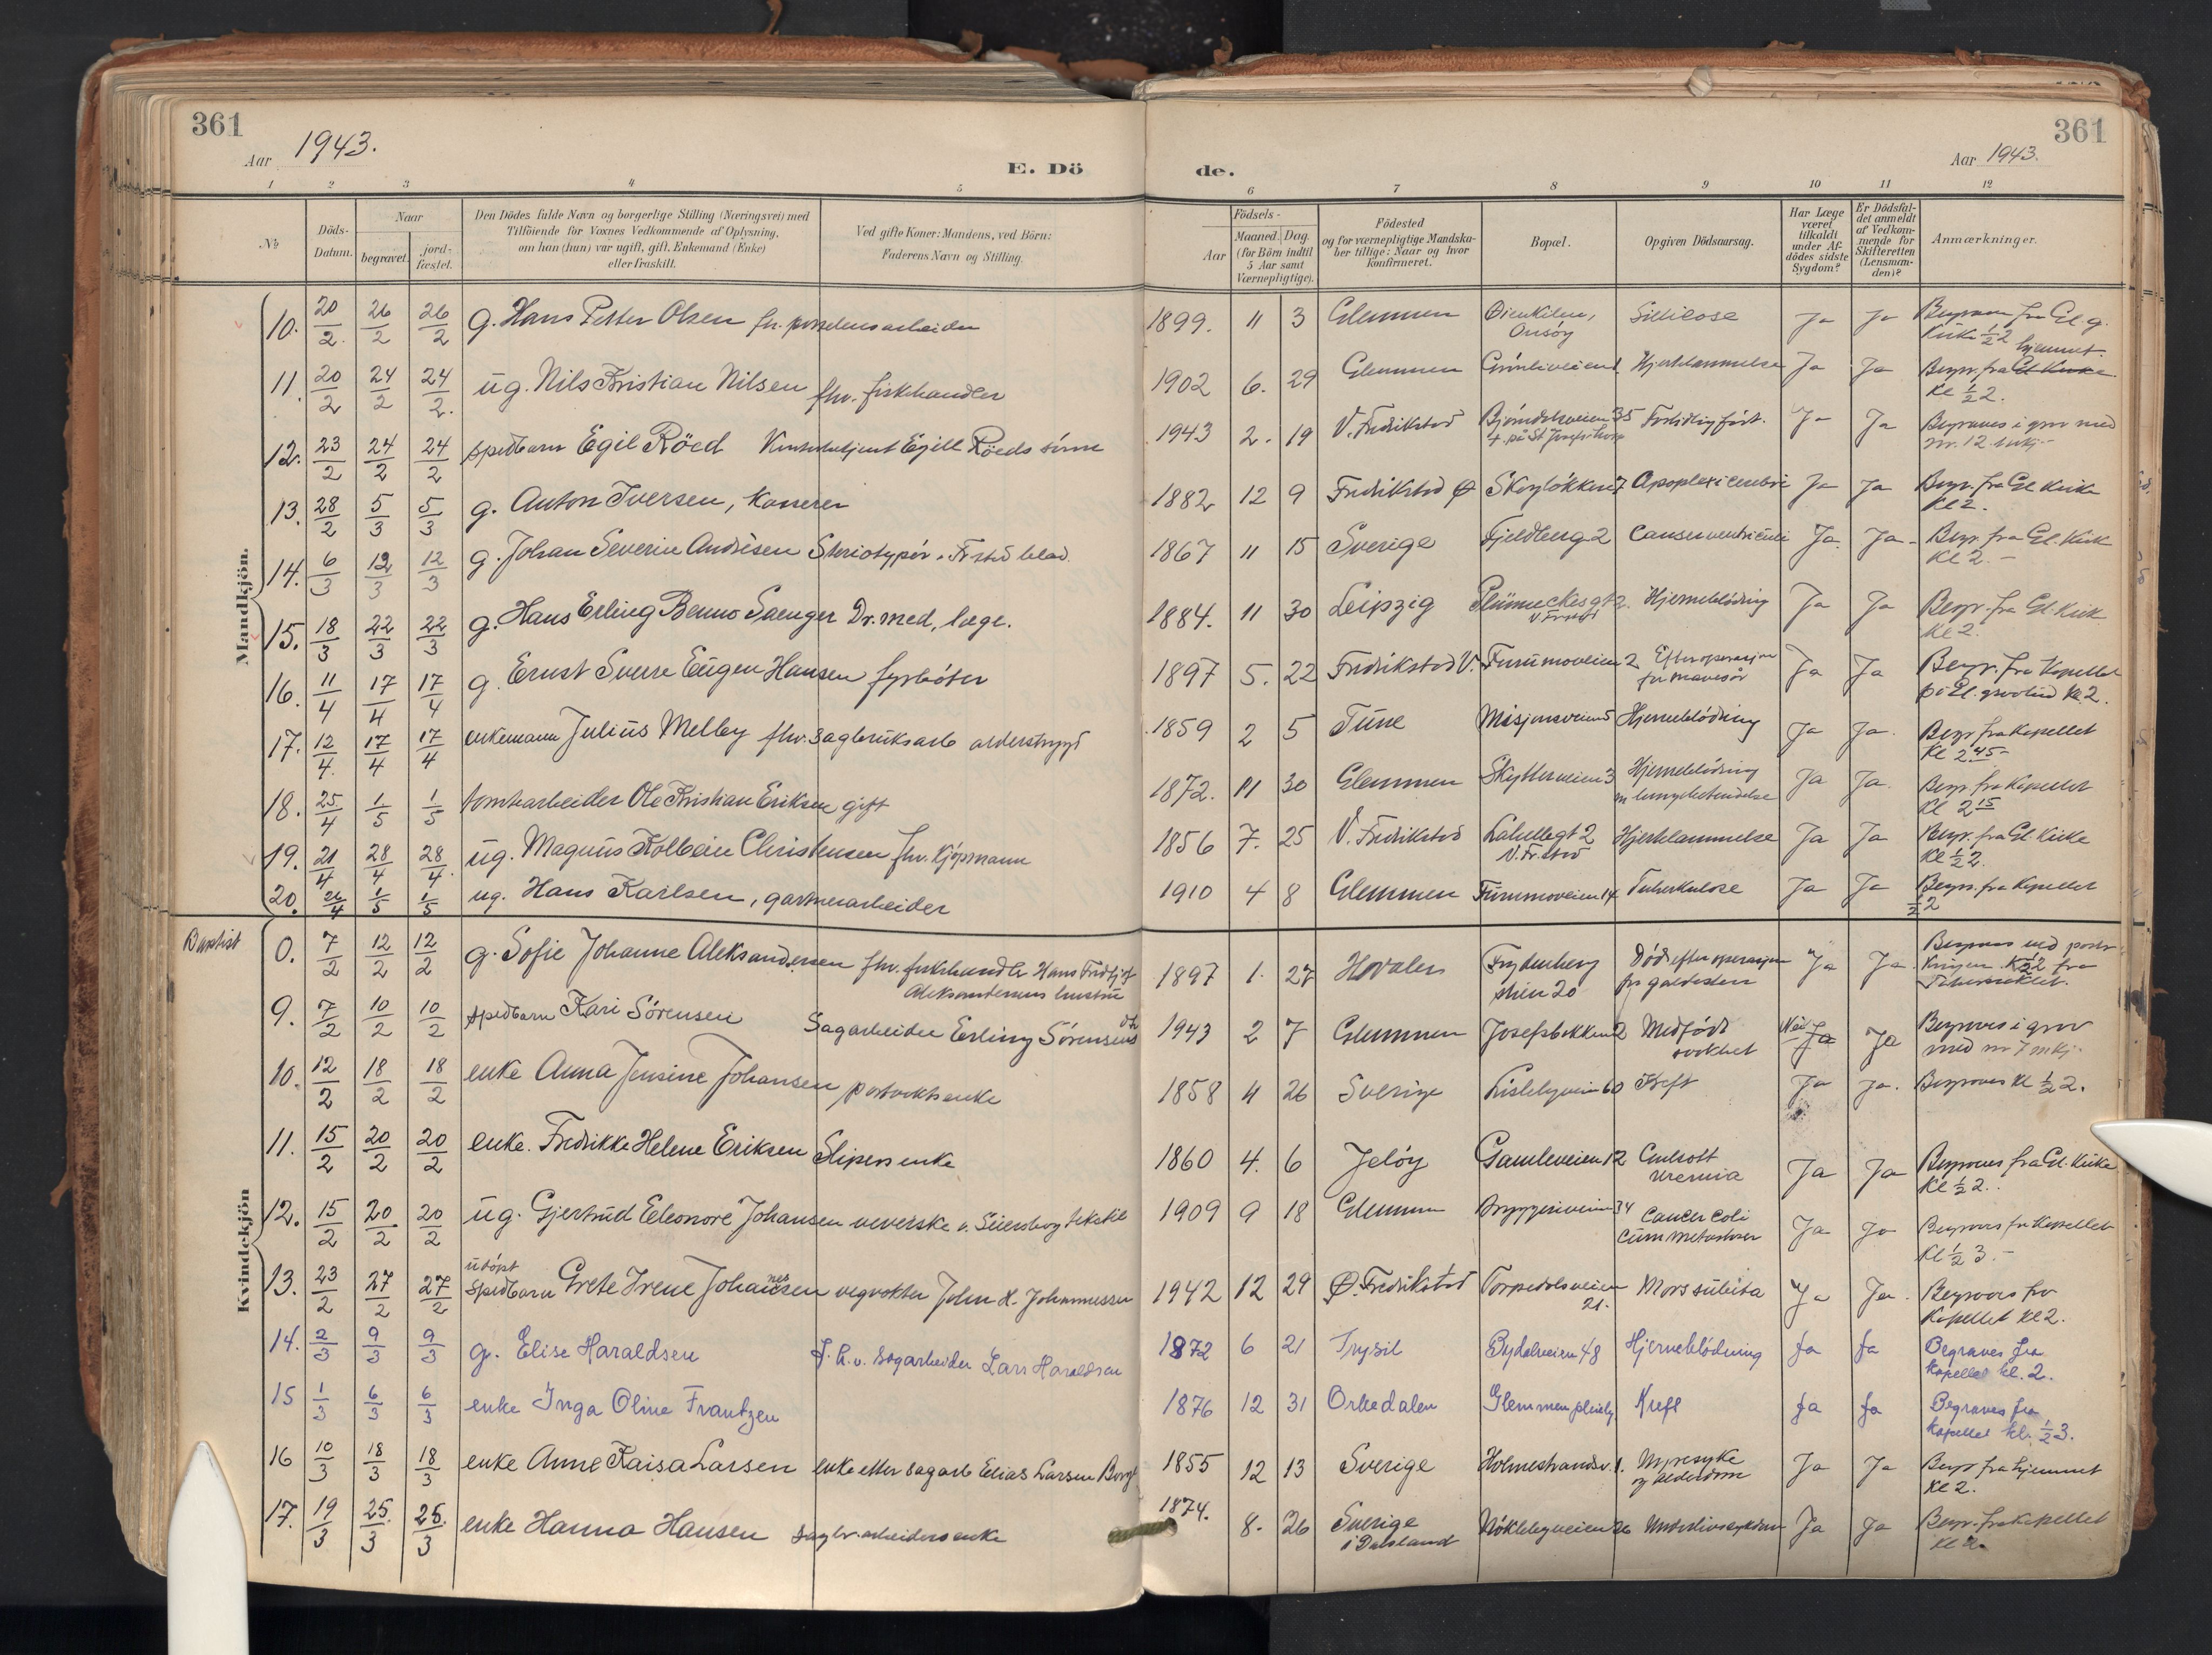 361
Aar 1943.
E. Dö
de.
Aar 1943.
361
1 2 3 4 5 6 7 8 9 10 11 12
№
Döds-Datum.
Naar
begravet.
jord-fæstet.
Den Dödes fulde Navn og borgerlige Stilling (Næringsvei) med
Tilföiende for Voxnes Vedkommende af Oplysning,
om han (hun) var ugift, gift, Enkemand (Enke)
eller fraskilt.
Ved gifte Koner: Mandens, ved Börn:
Faderens Navn og Stilling.
Födsels-
Aar
Maaned. Dag.
(for Börn indtil
5 Aar samt
Værnepligtige).
Födested
og for værnepligtige Mandska-
ber tillige: Naar og hvor
konfirmeret.
Bopæl.
Opgiven Dödsaarsag.
Har Læge
været
tilkaldt
under Af-
dödes sidste
Sygdom?
Er Dödsfal-
det anmeldt
af Vedkom-
mende for
Skifteretten
(Lensman-
den)?
Anmærkninger.
Mandkjön.
10. 20/2. 26/2 26/2 g. Hans Petter Olsen fv. porselensarbeider 1899. 11 3 Glemmen Öienkilen, Onsöy Silicose Ja Ja Begraves fra Gl. g. Kirke ½2
11. 20/2 24/2 24/2. ug. Nils Kristian Nilsen fhv. fiskehandler 1902 6. 29 Glemmen Grönliveien 1 Hjertelammelse Ja Ja Begr. fra Gl Kirke hjemmet. Kl ½2.
12. 23/2 24/2 24/2 spedbarn Egil Röed Egill Röeds sönn 1943 2. 19 V. Fredrikstad 35 Ja Ja Begraves i grav med nr. 12
13. 28/2 5/3 5/3 g. Anton Iversen, kasserer 1882 12 9 Fredrikstad Ø Skoglökken 7 Apoplexi cerebri Ja Ja Begr. fra Gl Kirke Kl 2.
14. 6/3 12/3 12/3 g. Johan Severin Andresen Steriotypör v. Fr.stad blad. 1867 11 15 Sverige Fjeldberg 2 Cancer ventriculi Ja. Ja - Begr. fra Gl. Kirk Kl 2 -
15. 18/3 22/3 22/3 g. Hans Erling Benno Saenger Dr. med, læge. 1884. 11 30 Leipzig Plümeckesgt 2. V. Fr.stad Hjerneblödning Ja Ja Begr. fra Gl Kirk Kl 2.
16. 11/4 17/4 17/4 g. Ernst Sverre Eugen Hansen fyrböter 1897 5. 22 Fredrikstad V. Furumoveien 2 Efter operasjon for mavesår Ja Ja Begr. fra Kapellet på Gl. gravlund kl 2.
17. 12/4. 17/4 17/4 enkemann Julius Melby fhv. sagbruksarb alderstrygd 1859 2 5 Tune Misjonsveien 5 Hjerneblödning Ja Ja. Begr fra Kapellet Kl 2 45 -
18. 25/4 1/5 1/5 tomtearbeider Ole Kristian Eriksen gift 1872. 11 30 Glemmen Skytterveien 3 Hjerneblödning m lungebetendelse Ja Ja. Begr fra Kapellet Kl 2 15
19. 21/4 28/4 28/4. ug. Magnus Kolbein Christensen fhv. kjöpmann 1856 7. 25 V. Fredrikstad Labellegt 2 V. Fr.stad Hjertelammelse Ja Ja Begr. fra Gl. Kirke Kl ½2.
20. 26/4 1/5 1/5 ug. Hans Karlsen, gartnerarbeider 1910 4 8 Glemmen Furumoveien 14 Tuberkulose Ja Ja Begr. fra Kapellet ½2
Kvindekjön
Baptist 0. 7/2 12/2 12/2 g. Sofie Johanne Aleksandersen fhv. fiskehandler Hans Fridtjof Aleksandersens hustru 1897 1. 27 Hvaler Frydenberg stien 20 Död efter operasjon for galdesten Ja Ja. Begraves
9. 7/2 10/2 10/2 spedbarn Kari Sörensen Sagarbeider Erling Sörensens dtr 1943 2 7 Glemmen Josefsbakken 2 Medfödt svakhet Nei Ja Ja Begraves i grav med nr 7 mkj.
10. 12/2 18/2 18/2 enke Anna Jensine Johansen 1858 4 26 Sverige Lislebyveien 60 Kreft Ja Ja. Begraves Kl ½2.
11. 15/2 20/2 20/2 enke. Fredrikke Helene Eriksen Slipers enke 1860 4. 6 Jelöy Gamleveien 12 uremia Ja Ja Begraves fra Gl. Kirke Kl ½2.
12. 15/2 20/2 20/2 ug. Gjertrud Eleonore Johansen veverske v. Seiersborg tekstil 1909 9 18 Glemmen Bryggeriveien 34 Cancer Coli cum metastaser Ja Ja Begraves fra Kapellet Kl ½3. -
13. 23/2 27/2 27/2 udöpt spedbarn Grete Irene Johannessen vegvokter John H. Johannessen 1942 12 29 Ø. Fredrikstad Torpedalsveien 21. Mors subita Ja Ja. Begraves fra Kapellet kl 2.
14. 2/3 9/3 9/3 g. Elise Haraldsen f.h.v. sagarbeider Lars Haraldsen 1872 6 21 Trysil Bydalveien 48 Hjerneblödning ja ja Begraves fra kapellet kl. 2.
15 1/3 6/3 6/3 enke Inga Oline Frantzen 1876 12 31 Orkedalen Glemmen pleiehj. Kreft ja ja Begraves fra kapellet kl. ½3.
16 10/3 18/3 18/3 enke Anne Kaisa Larsen enke etter sagarb Elias Larsen Borge 1855 12 13 Sverige Holmestrandsv. 1. og alderdom Ja Ja Begr fra hjemmet kl 2.
17. 19/3 25./3 25./3 enke Hanna Hansen sagbr. arbeiders enke 1874. 8. 26 Sverige i Dalsland Nöklebyveien 26 Ja Ja Begr. fra kapellet kl 2.